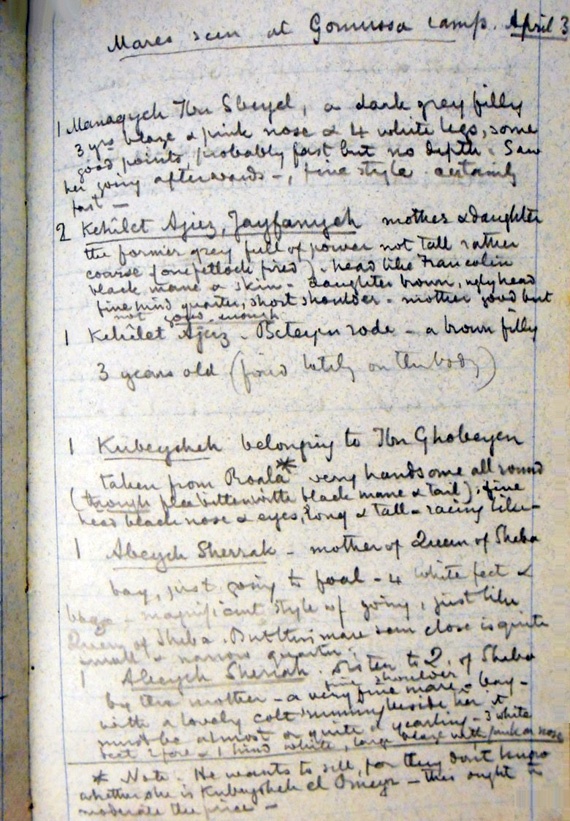 Mares seen at Gomussa camp. April 3
1 Managyeh Ibn Sbeyel, a dark grey filly
3 yrs blaze & pink nose & 4 white legs, some
good points, probably fast but no depth. Saw
her going afterwards -, fine style certainly
fast -
2 Kehilet Ajuz, Jayfanyeh mother & daughter
the former grey full of power not tall rather
coarse (one fetlock fired). head like Francolin
black mane & skin - daughter brown, ugly head
fine hind quarter, short shoulder - mother good but
not good enough
1 Kehilet Ajuz - Beteyen rode - a brown filly
3 years old (fired lately on the body)
1 Kubeysheh belonging to Ibn Ghobeyen
taken from Roala * very handsome all round
(though flea bitten with black mane & tail); fine
head black nose & eyes, long & tall - racing like -
1 Abeyeh Sherrak - mother of Queen of Sheba
bay, just going to foal - 4 white feet &
- magnificent style of going, just like
Queen of Sheba. But this mare seen close is quite
small & narrow quarter.
1 Abeyeh Sherrak. Sister to Q. of Sheba
by the mother - a very fine mare - bay -
fine shoulder
with a lovely colt running beside her, it
must be almost or quite a yearling - 3 white
feet 2 fore & 1 hind white, large blaze with pink on nose
* Note. He wants to sell, for they don't know
whether she is Kubeysheh el Omeyr - this ought to
moderate the price -